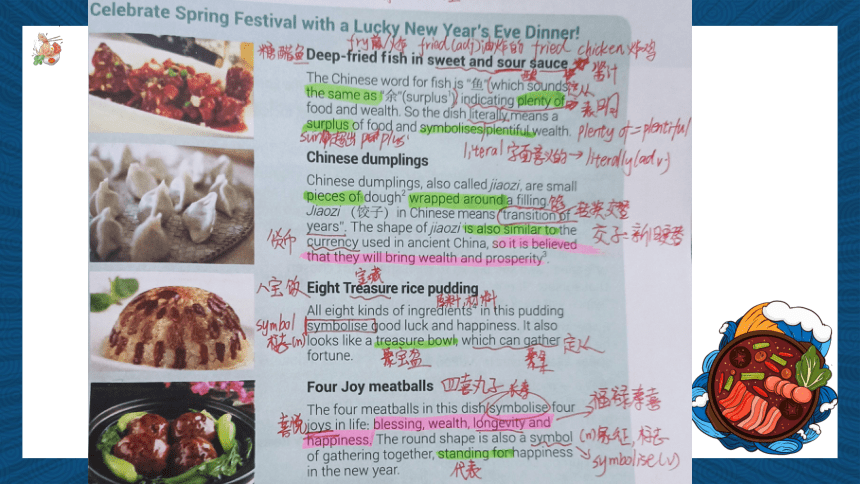 Celebrate Spring Festival with a Lucky New Year's Eve Dinner!
fry 煎/炸 fried(adj)油炸的 fried chicken 炸鸡
糖醋鱼 Deep-fried fish in sweet and sour sauce 酱汁
The Chinese word for fish is "鱼"(which sounds
the same as "余"(surplus¹), indicating plenty of 表明
food and wealth. So the dish literally means a
surplus of food and symbolises plentiful wealth. plenty of = plentiful
literal 字面意义的→literally(adv)
Chinese dumplings
Chinese dumplings, also called jiaozi, are small
pieces of dough² wrapped around a filling 馅
Jiaozi (饺子) in Chinese means "transition of
years". The shape of jiaozi is also similar to the
货币 currency used in ancient China, so it is believed
that they will bring wealth and prosperity³.
宝藏
八宝饭 Eight Treasure rice pudding
原料,材料
All eight kinds of ingredients⁴ in this pudding
symbol symbolise good luck and happiness. It also
标志(n) looks like a treasure bowl, which can gather 定从
fortune. 聚宝盆 聚集
Four Joy meatballs 四喜丸子 长寿
The four meatballs in this dish symbolise four 福禄寿喜
喜悦 joys in life: blessing, wealth, longevity and
happiness. The round shape is also a symbol (n)象征,标志
of gathering together, standing for happiness symbolise(v)
in the new year. 代表